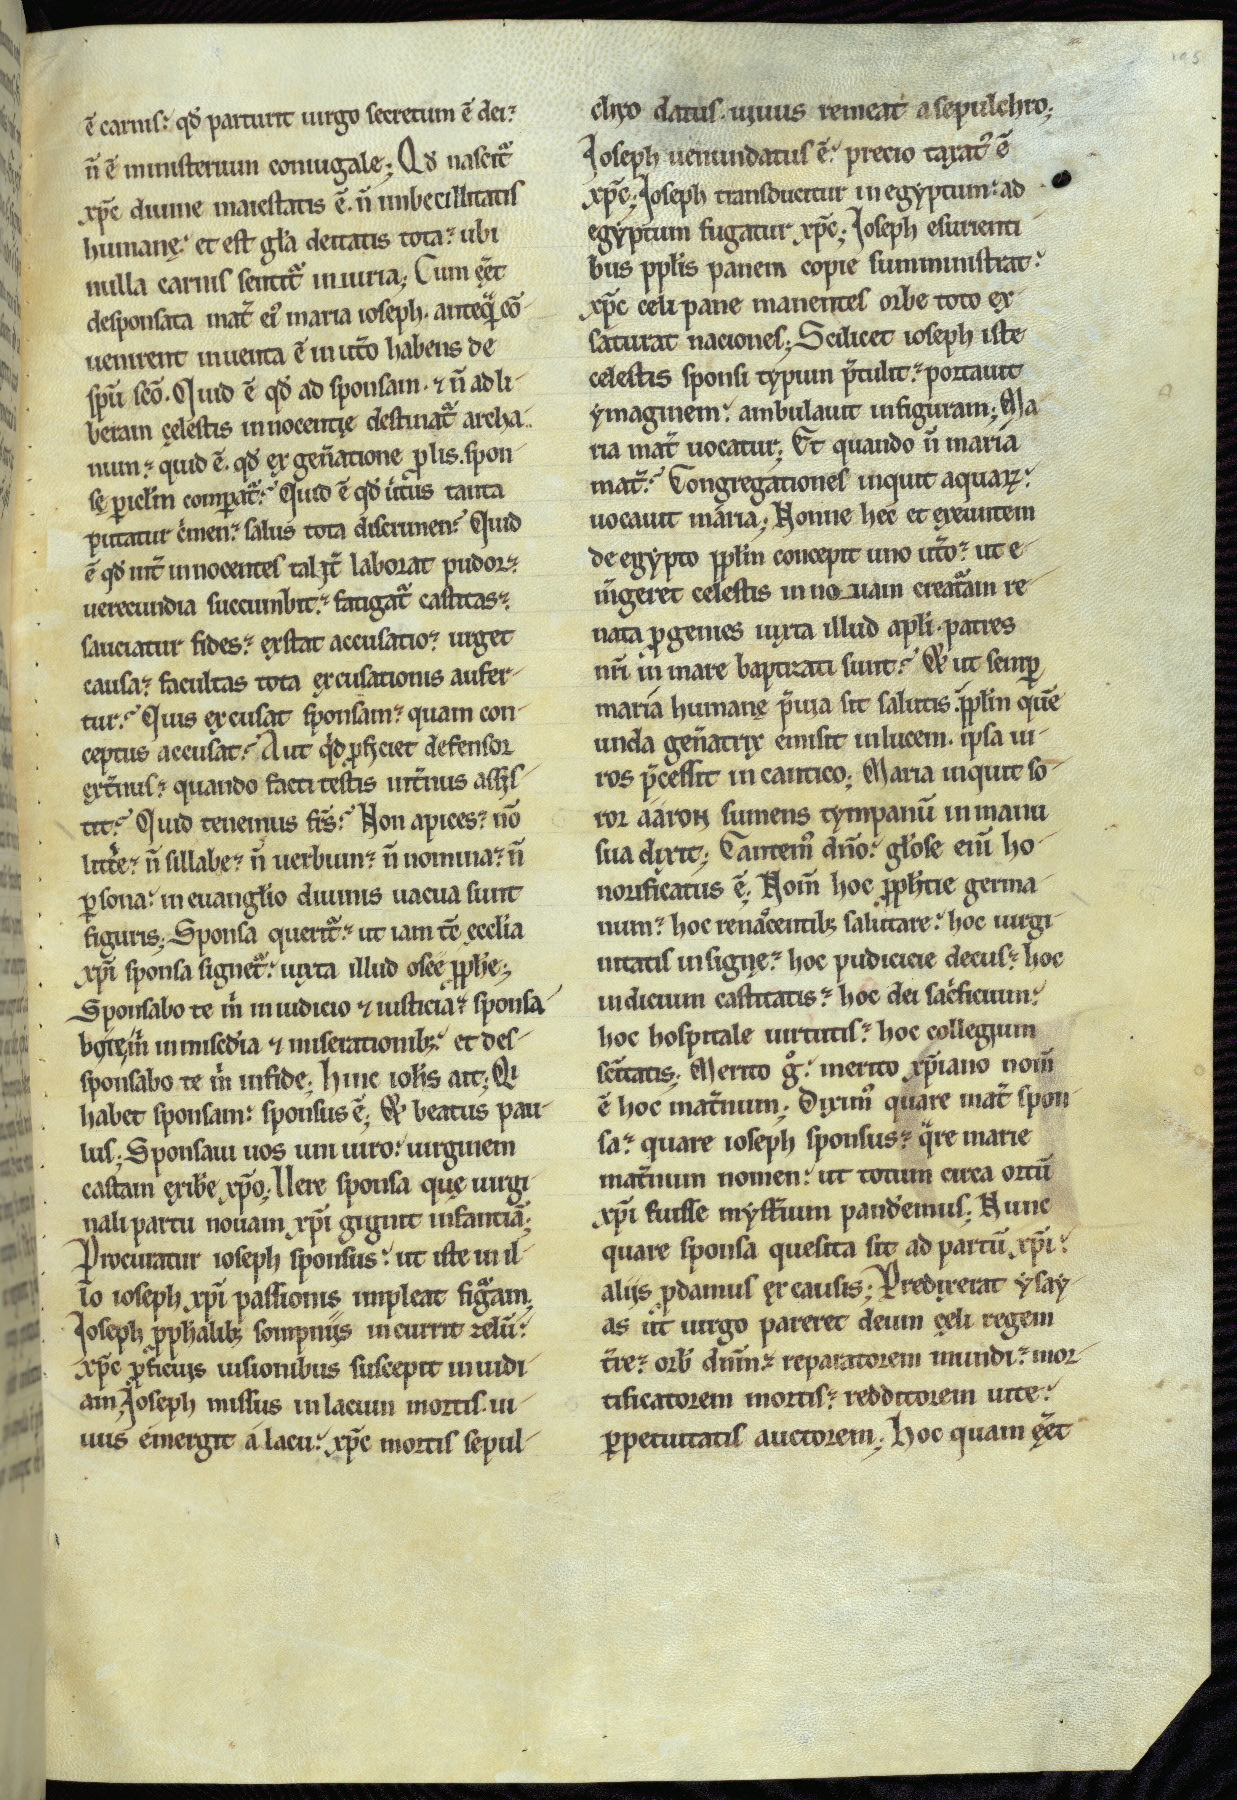 ē carnis: qđ parturit uirgo secretum ē dei:
ñ ē ministerium coniugale; Qđ nascit᷑
xp̄c diuine maiestatis ē. ñ imbecillitatis
humanę: et est gl̄a deitatis tota: ubi
nulla carnis sentit᷑ iniuria; Cum ęēt
desponsata mat̄ ei᷒ maria ioseph. anteq̄ cō
uenirent inuenta ē in ut̄o habens de
sp̄u sc̄o. Quid ē qđ ad sponsam. ⁊ ñ ad li
beram cęlestis innocentię destinat᷑ archa
num: quid ē. qđ ex gen̄atione plis. spon
se piclm comparat᷑: Quid ē qđ ut̄us tanta
putatur c̄men: salus tota discrimen: Quid
ē qđ int̄ innocentes talit̄ laborat pudor:
uerecundia succumbit: fatigat᷑ castitas:
sauciatur fides: exstat accusatio: urget
causa: facultas tota excusationis aufer
tur: Quis excusat sponsam: quam con
ceptus accusat: Aut qđ pficiet defensor
ext̄nus: quando facti testis int̄nus assis
tit: Quid tenemus fr̄s: Non apices: nō
litt̄e: ñ sillabe: ñ uerbum: ñ nomina: ñ
psona: in euangl̄io diuinis uacua sunt
figuris; Sponsa querit᷑: ut iam tc̄ eccl̄ia
xp̄i sponsa signet᷑: iuxta illud osee pph̄e;
Sponsabo te m̄ in iudicio ⁊ iusticia: sponsa
bo te m̄ in misđia ⁊ miserationib;: et des
sponsabo te m̄ in fide; hinc ioh̄s ait; Qi
habet sponsam: sponsus ē; & beatus pau
lus; Sponsaui uos uni uiro: uirginem
castam exib̄e xp̄o; Uere sponsa quę uirgi
nali partu nouam xp̄i gignit infantiā;
Procuratur ioseph sponsus: ut iste in il
lo ioseph xp̄i passionis impleat fig᷑am;
Ioseph pphalib; sompnijs incurrit zelū:
xp̄c pficuis uisionibus suscepit inuidi
am; Ioseph missus in lacum mortis. ui
uus emergit a lacu: xp̄c mortis sepul
chro datus. uiuus remeat a sepulchro;
Ioseph uenundatus ē: precio taxat᷒ ē
xp̄c; Ioseph transducitur in egyptum: ad
egyptum fugatur xp̄c; Ioseph esurienti
bus pplis panem copie sumministrat:
xp̄c celi pane manentes orbe toto ex
saturat naciones; Scilicet ioseph iste
celestis sponsi typum p̄tulit: portauit
ymaginem: ambulauit in figuram; Ma
ria mat̄ uocatur; Et quando ñ maria
mat̄: Congregationes inquit aquaꝝ:
uocauit maria; Nonne hec et exeuntem
de egypto pplm concepit uno ut̄o: ut e
m̄geret celestis in nouam creat᷑am re
nata pgenies iuxta illud apl̄i. patres
nr̄i in mare baptizati sunt: & ut semp
maria humanę p̄uia sit salutis. pplm quē
unda gen̄atrix emisit in lucem. ipsa ui
ros p̄cessit in cantico; Maria inquit so
ror aaron sumens tympanū in manu
sua dixit; Cantem᷒ dn̄o: gl̄ose enī ho
norificatus ē; Nom̄ hoc pph̄tie germa
num: hoc renascentib; salutare: hoc uirgi
nitatis insigne: hoc pudicicie decus: hoc
indicium castitatis: hoc dei sac̄ficium:
hoc hospitale uirtutis: hoc collegium
sc̄itatis; Merito g᷒: merito xp̄iano nom̄
ē hoc mat̄num; Dixim᷒ quare mat̄ spon
sa: quare ioseph sponsus: q̄re marie
mat̄num nomen: ut totum circa ortū
xp̄i fuisse myst̄ium panđemus; Nunc
quare sponsa quesita sit ad partū xp̄i:
alijs pdamus ex causis; Predixerat ysay
as ut̄ uirgo pareret deum cęli regem
t̄re: orb̄ dn̄m: reparatorem mundi: mor
tificatorem mortis: redditorem uite:
ppetuitatis auctorem; Hoc quam ęēt